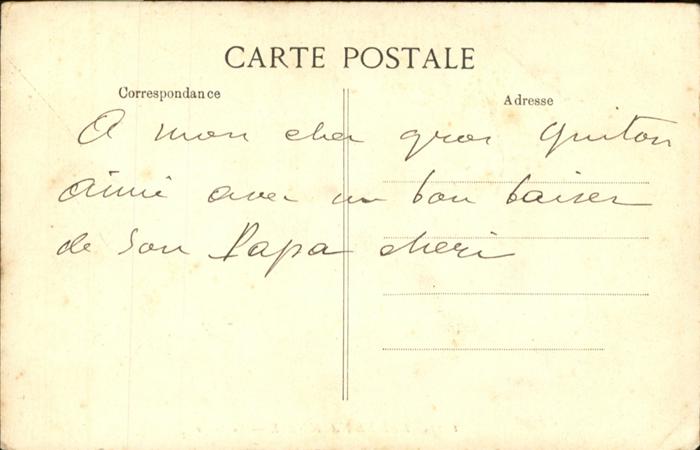 CARTE POSTALE
Correspondance
Adresse
A mon cher gros Guiton
aimé avec un bon baiser
de son Papa cheri